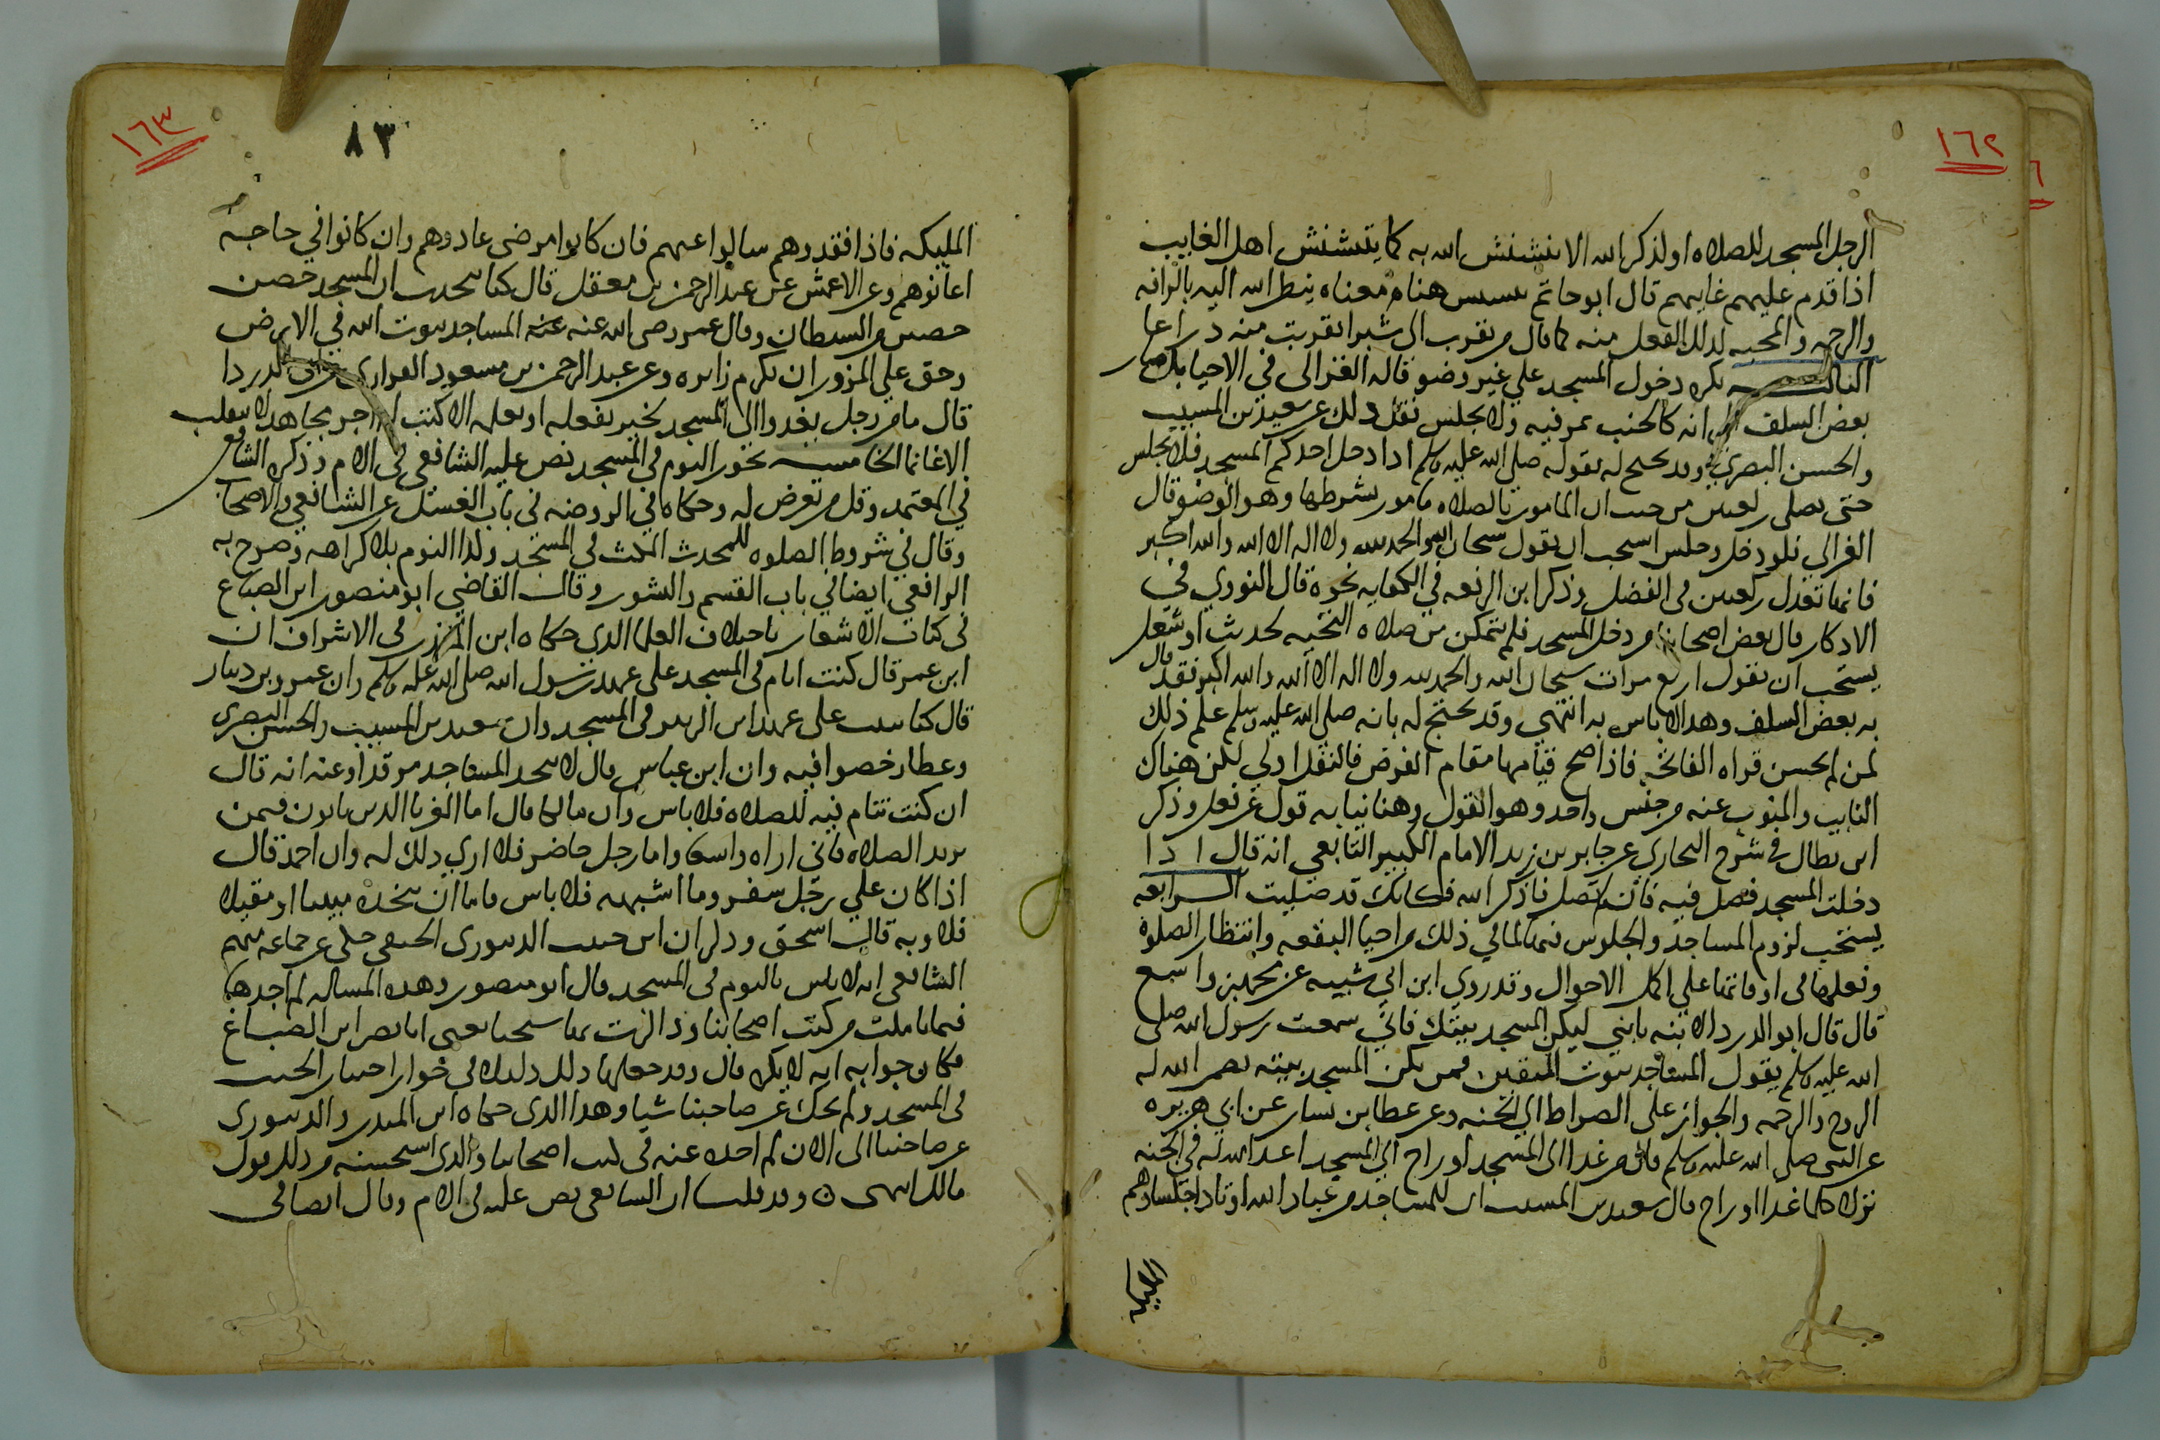 ١٦٢
الرجل المسجد للصلاه او لذكر الله الا تبشبش الله به كما يتبشبش اهل الغايب
اذا قدم عليهم غايبهم قال ابو حاتم هنا معناه ينظر الله اليه بالرافه
والرحمه والمحبه لذلك الفعل منه كما قال من تقرب الى شبرا تقربت منه ذراعا
الثالثه يكره دخول المسجد علي غير وضو قاله الغزالى في الاحيا بل
بعض السلف الى انه كالجنب يمر فيه ولا يجلس نقل ذلك عن سعيد بن المسيب
والحسن البصري وقد يحتج له بقوله صلى الله عليه وسلم اذا دخل احدكم المسجد فلا يجلس
حتى يصلى ركعتين من حيث ان المامور بالصلاه مامور بشرطها وهو الوضو قال
الغزالي فلو دخل وجلس استحب ان يقول سبحان الله والحمد لله ولا اله الا الله والله اكبر
فانها تعدل ركعتين فى الفضل وذكر ابن الرفعه في الكفايه نحوه قال النووي في
الاذكار قال بعض اصحابنا من دخل المسجد فلم يتمكن من صلاه التحيه لحدث او شغل
يستحب ان يقول اربع مرات سبحان الله والحمد لله ولا اله الا الله والله اكبر فقد قال
به بعض السلف وهذا لا باس به انتهي وقد يحتج له بانه صلى الله عليه وسلم علم ذلك
لمن لم يحسن قراه الفاتحه فاذا صح قيامها مقام الفرض فالنفل اولي لكن هناك
النايب والمنوب عنه من جنس واحد وهو القول وهنا نيابه قول عن فعل وذكر
ابن بطال في شرح البخاري عن جابر بن زيد الامام الكبير التابعي انه قال اذا
دخلت المسجد فصل فيه فان لم تصل فاذكر الله فكانك قد صليت الرابعه
يستحب لزوم المساجد والجلوس فيها لما في ذلك من احيا البقعه وانتظار الصلوه
وفعلها فى اوقاتها علي اكمل الاحوال وقد روي ابن ابي شيبه عن محمد بن واسع
قال قال ابو الدردا لابنه يا بني ليكن المسجد بيتك فاني سمعت رسول الله صلى
الله عليه وسلم يقول المساجد بيوت المتقين فمن يكن المسجد بيته يضمن الله له
الروح والرحمه والجواز على الصراط الي الجنه وعن عطا بن يسار عن ابي هريره
عن النبى صلى الله عليه وسلم قال من غدا الى المسجد او راح الي المسجد اعد الله له في الجنه
نزلا كلما غدا او راح قال سعيد بن المسيب ان للمساجد من عباد الله اوتادا جلساوهم
المليكه
١٦٣
٨٣
المليكه فاذا فقدوهم سالوا عنهم فان كانوا مرضى عادوهم وان كانوا في حاجه
اعانوهم وعن الاعمش عن عبد الرحمن بن معقل قال كنا نحدث ان المسجد حصن
حصين من الشيطان وقال عمر رضى الله عنه المساجد بيوت الله في الارض
وحق علي المزور ان يكرم زايره وعن عبد الرحمن بن مسعود الفزارى الدردا
قال ما من رجل يغدوا الى المسجد لخير يفعله او يعلمه الا كتب اجر مجاهد لا ينقلب
الا غانما الخامسه يجوز النوم في المسجد نص عليه الشافعى فى الام وذكره الشافعى
في المعتمد وقل من تعرض له وحكاه في الروضه في باب الغسل عن الشافعي والاصحاب
وقال في شروط الصلوه للمحدث المكث في المسجد وكذا النوم بلا كراهه وصرح به
الرافعي ايضا في باب القسم والنشوز وقال القاضي ابو منصور ابن الصباغ
فى كتاب الاشعار باختلاف العلما الذى حكاه ابن المنذر فى الاشراف ان
ابن عمر قال كنت انام فى المسجد على عهد رسول الله صلى الله عليه وسلم وان عمرو بن دينار
قال كنا نبيت على عهد ابن الزبير فى المسجد وان سعيد بن المسيب والحسن البصري
وعطا رخصوا فيه وان ابن عباس قال لا تتخذ المساجد مرقدا وعنه انه قال
ان كنت تنام فيه للصلاه فلا باس وان مالكا قال اما الغربا الذين ياتون فمن
يريد الصلاه فاني اراه واسعا واما رجل حاضر فلا اري ذلك له وان احمد قال
اذا كان علي رجل سفر وما اشبهه فلا باس فاما ان يتخذه مبيتا او مقيلا
فلا وبه قال اسحق وذكر ان ابن حبيب الدينورى الحنفى حكى عن جماعه منهم
الشافعى انه لا باس بالنوم فى المسجد قال ابو منصور وهذه المساله لم اجدها
فيما تاملت من كتب اصحابنا وذاكرت بها شيخنا يعنى ابا نصر ابن الصباغ
فكان جوابه انه لا يكره قال وقد جعلها ذلك دليلا فى جواز اجتياز الجنب
فى المسجد ولم يحك عن صاحبنا شيا وهذا الذى حكاه ابن المنذر والدينورى
عن صاحبنا الى الان لم اجده عنه فى كتب اصحابنا والذى استحسنه من ذلك قول
مالك انتهى ن وقد قلت ان الشافعى نص عليه فى الام وقال ايضا فى